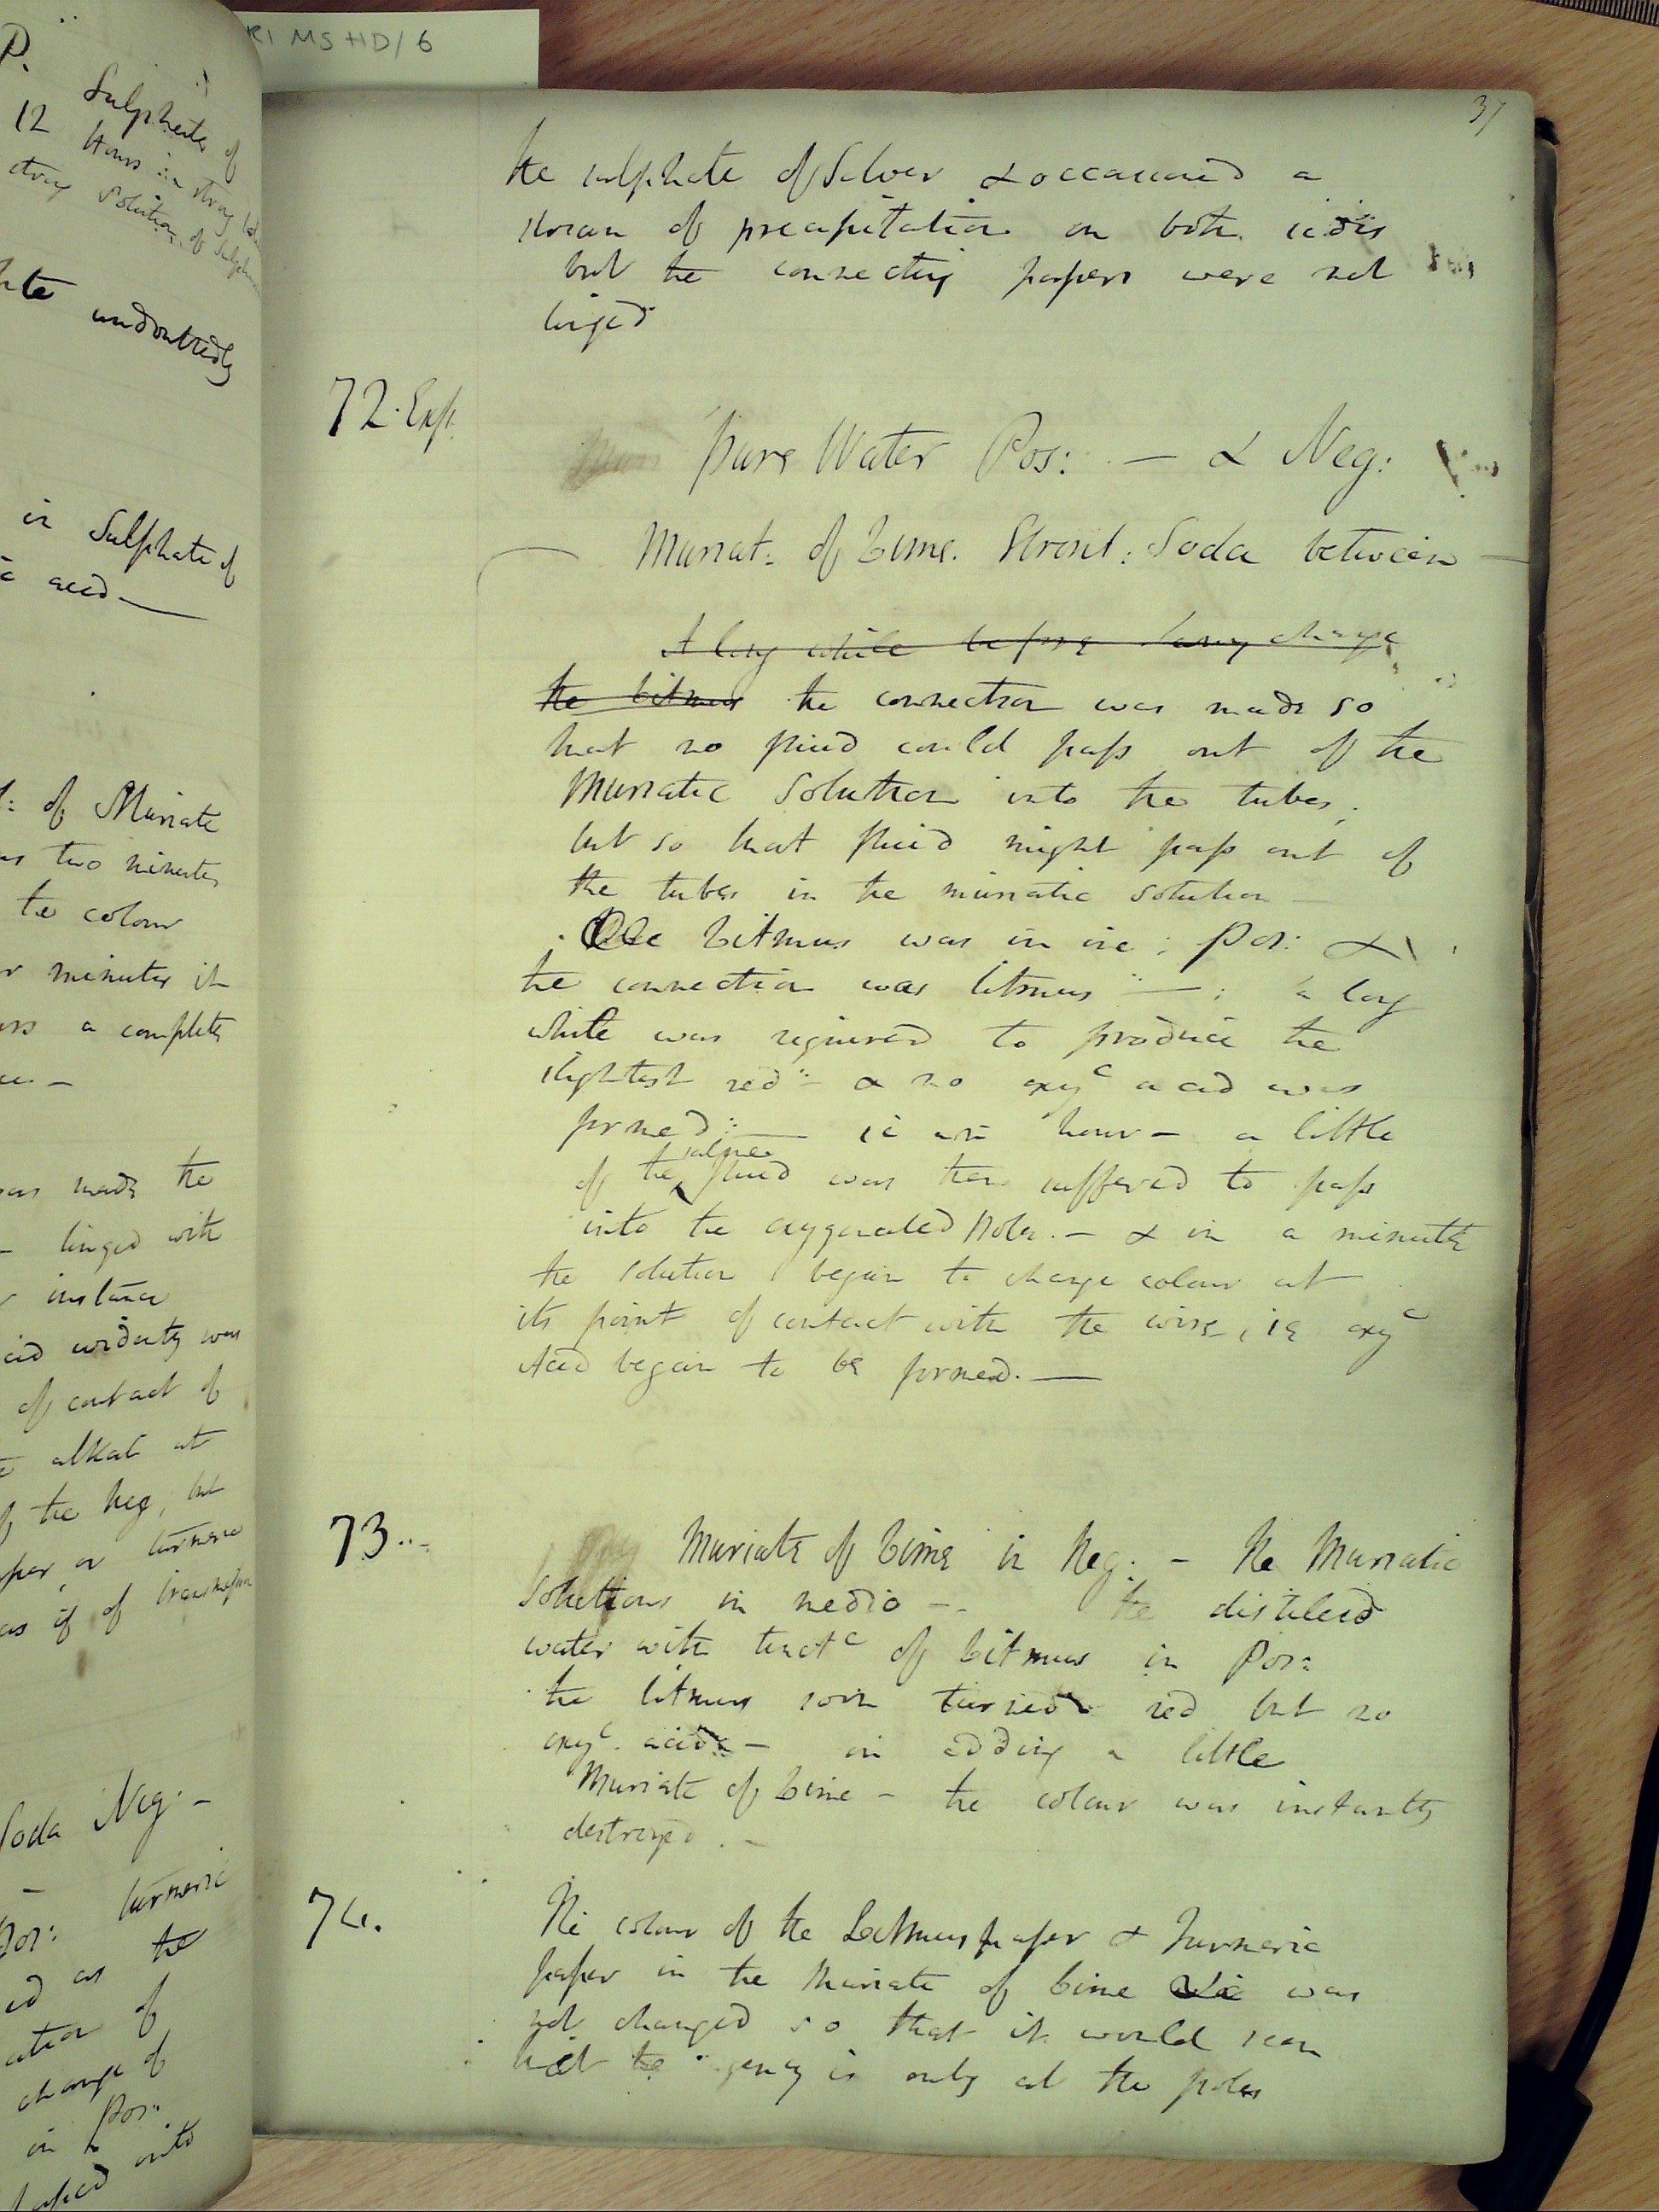 RI MS HD/6
37
P.
Sulphate of
12 Hours in strong
strong Solution of
undoubtedly
in Sulphate of
acid —
of Muriate
two minutes
the colour
minutes it
a complete
made the
— tinged with
instance
evidently was
of contact of
alkali at
of the Neg, but
paper, or turmeric
as if of
Soda Neg: —
— turmeric
Pos:
as the
of
change of
in Pos:
into
the sulphate of Silver & occasioned a
of precipitation on both sides
but the connecting papers were not
tinged
72. Exp.
pure Water Pos: — & Neg:
Muriat: of Lime. Stront: Soda between —
A long while before any change
the litmus the connection was made so
that no fluid could pass out of the
Muriatic Solution into the tubes,
but so that fluid might pass out of
the tubes in the muriatic solution —
Litmus was in in: pos: &
the connection was litmus — : a long
while was required to produce the
slightest red — & no oxyc acid was
formed: — ie an hour — a little
of the saline fluid was then suffered to pass
into the oxygenated Pole. — & in a minute
the solution began to change colour at
its point of contact with the wire, ie oxyc
Acid began to be formed. —
73..-
Muriate of Lime in Neg: — The Muriatic
Solutions in medio —. the distilled
water with tinctc of Litmus in Pos:
the litmus soon turned red but no
oxyc. acid — on adding a little
Muriate of Lime — the colour was instantly
destroyed. —
74.
The colour of the Litmus paper & Turmeric
paper in the Muriate of Lime was
not changed so that it would seem
that the agency is only at the poles